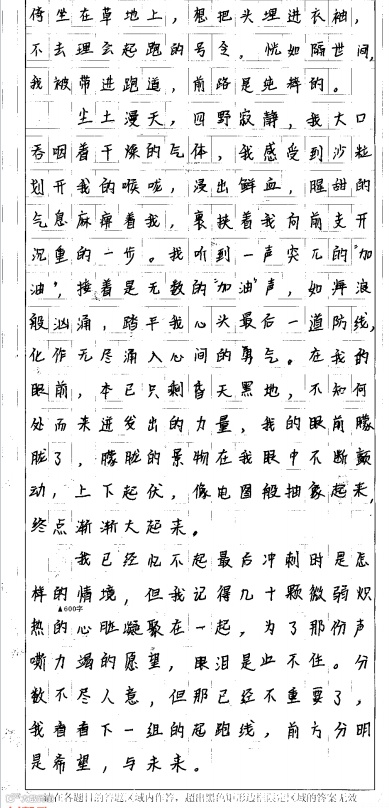 倚坐在草地上，想把头埋进衣袖，
不去理会起跑的号令，恍如隔世间，
我被带进跑道，前路是纯粹的。
尘土漫天，四野寂静，我大口
吞咽着干燥的气体，我感受到沙粒
划开我的喉咙，浸出鲜血，腥甜的
气息麻痹着我，裹挟着我向前支开
沉重的一步。我听到一声突兀的“加
油”，接着是无数的“加油”声，如海浪
般汹涌，踏平我心头最后一道防线，
化作无尽涌入心间的勇气。在我的
眼前，本已只剩昏天黑地，不知何
处而来迸发出的力量，我的眼前朦
胧了，朦胧的景物在我眼中不断颤
动，上下起伏，像电图般抽象起来，
终点渐渐大起来。
我已经忆不起最后冲刺时是怎
样的情境，但我记得几十颗微弱炽
▲600字
热的心脏凝聚在一起，为了那份声
嘶力竭的愿望，眼泪是止不住。分
数不尽人意，但那已经不重要了，
我看着下一组的起跑线，前方分明
是希望，与未来。
请在各题目的答题区域内作答，超出黑色矩形边框限定区域的答案无效